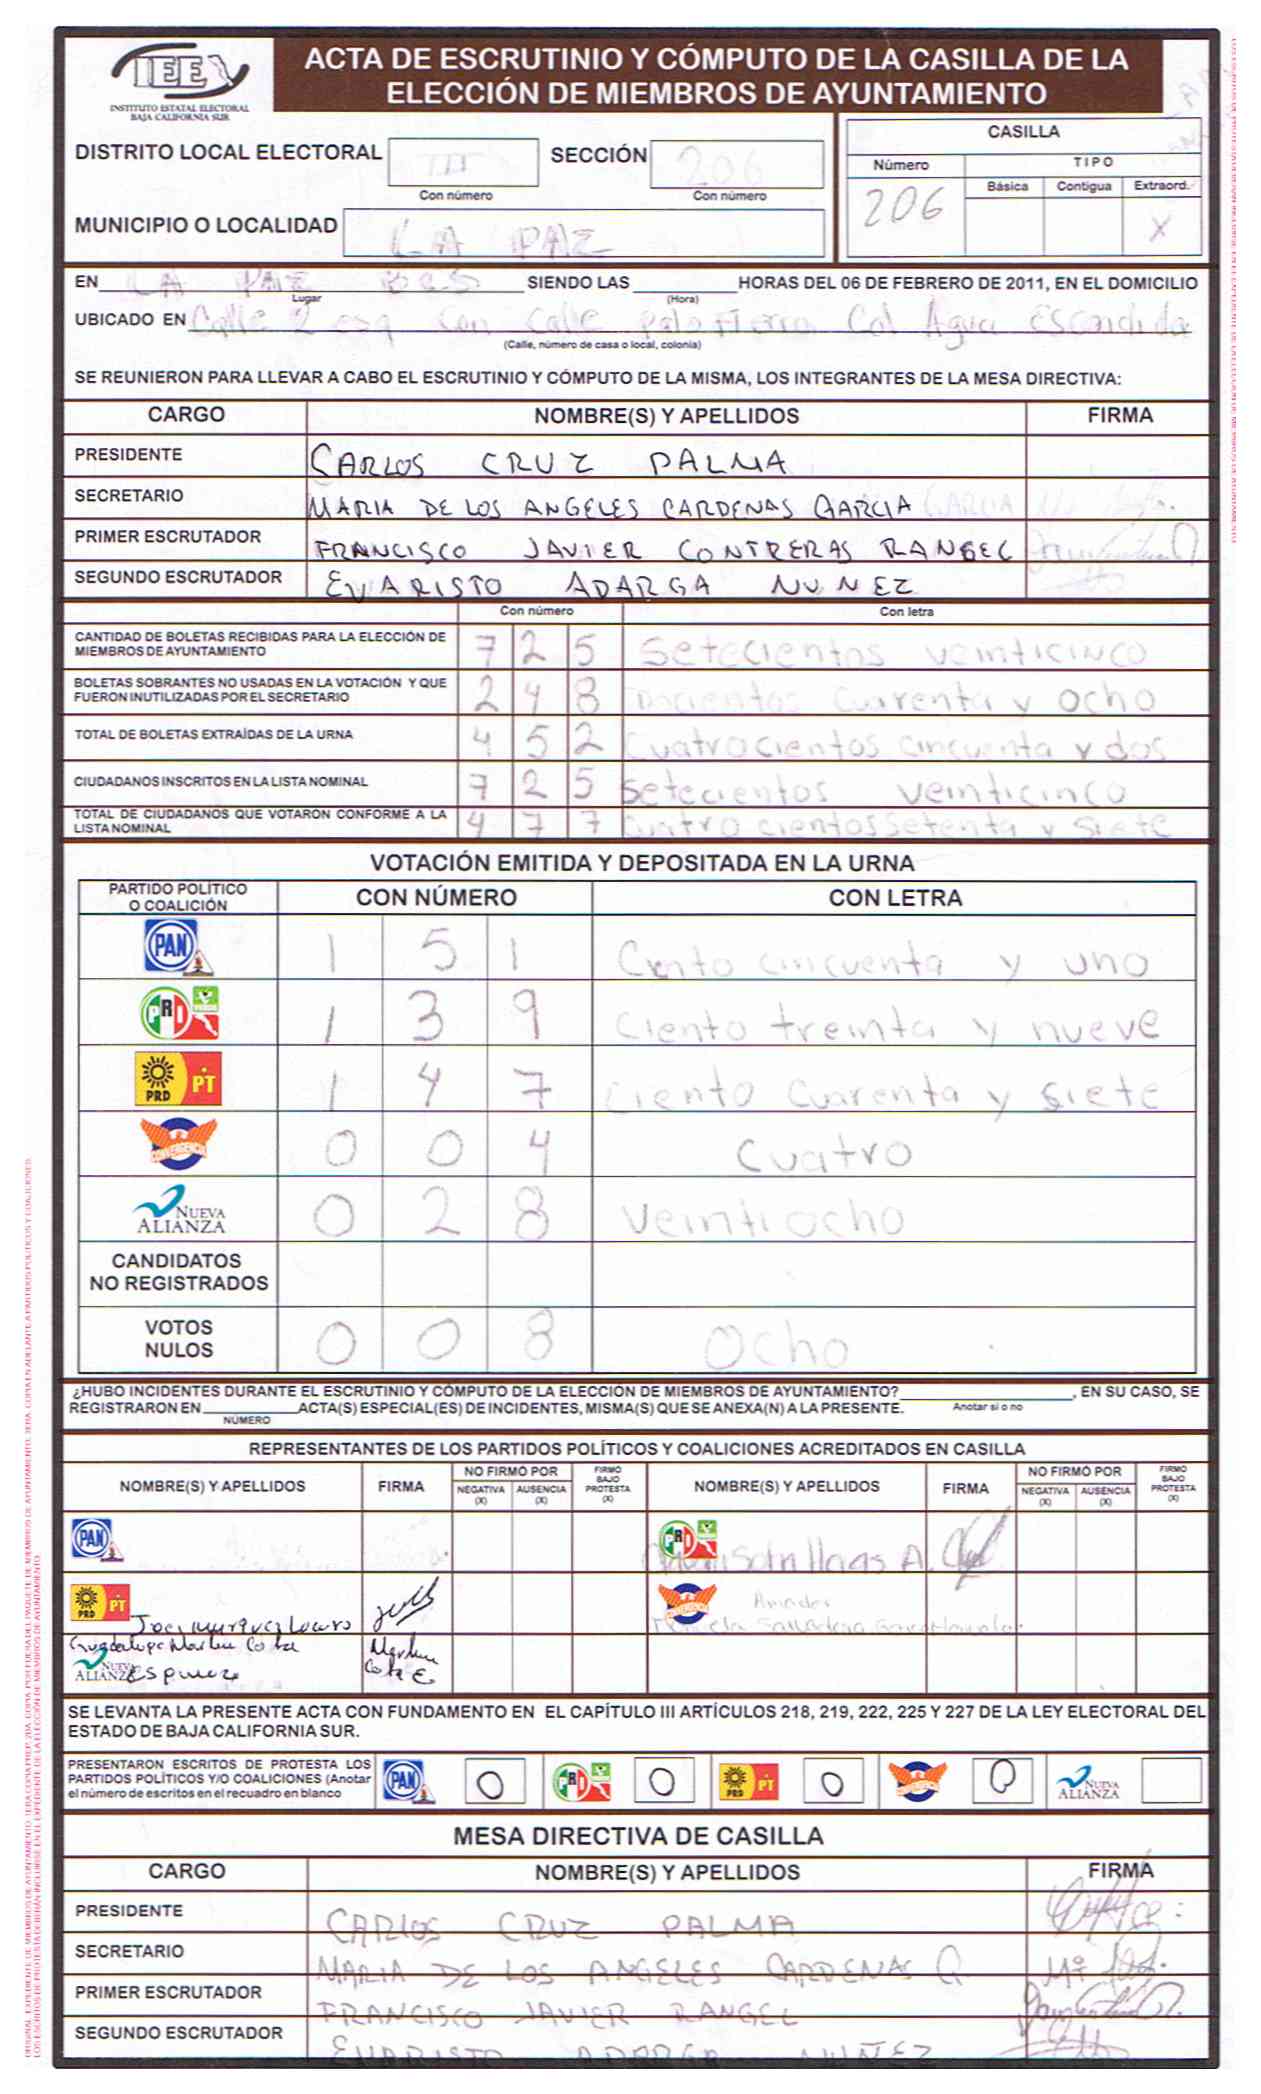 IEE
INSTITUTO ESTATAL ELECTORAL
BAJA CALIFORNIA SUR
ACTA DE ESCRUTINIO Y CÓMPUTO DE LA CASILLA DE LA
ELECCIÓN DE MIEMBROS DE AYUNTAMIENTO
DISTRITO LOCAL ELECTORAL III SECCIÓN 206
Con número Con número
MUNICIPIO O LOCALIDAD LA PAZ
CASILLA
Número TIPO
Básica Contigua Extraord.
206 X
EN LA PAZ BCS SIENDO LAS HORAS DEL 06 DE FEBRERO DE 2011, EN EL DOMICILIO
Lugar (Hora)
UBICADO EN Calle 2 esq con calle palo fierro Col Agua Escondida
(Calle, número de casa o local, colonia)
SE REUNIERON PARA LLEVAR A CABO EL ESCRUTINIO Y CÓMPUTO DE LA MISMA, LOS INTEGRANTES DE LA MESA DIRECTIVA:
CARGO NOMBRE(S) Y APELLIDOS FIRMA
PRESIDENTE CARLOS CRUZ PALMA
SECRETARIO MARIA DE LOS ANGELES CARDENAS GARCIA
PRIMER ESCRUTADOR FRANCISCO JAVIER CONTRERAS RANGEL
SEGUNDO ESCRUTADOR EVARISTO ADARGA NUNEZ
Con número Con letra
CANTIDAD DE BOLETAS RECIBIDAS PARA LA ELECCIÓN DE
MIEMBROS DE AYUNTAMIENTO 7 2 5 Setecientos veinticinco
BOLETAS SOBRANTES NO USADAS EN LA VOTACIÓN Y QUE
FUERON INUTILIZADAS POR EL SECRETARIO 2 4 8 Docientos Cuarenta y ocho
TOTAL DE BOLETAS EXTRAÍDAS DE LA URNA 4 5 2 Cuatrocientos cincuenta y dos
CIUDADANOS INSCRITOS EN LA LISTA NOMINAL 7 2 5 Setecientos veinticinco
TOTAL DE CIUDADANOS QUE VOTARON CONFORME A LA
LISTA NOMINAL 4 7 7 Cuatro cientos Setenta y Siete
VOTACIÓN EMITIDA Y DEPOSITADA EN LA URNA
PARTIDO POLÍTICO
O COALICIÓN CON NÚMERO CON LETRA
PAN 1 5 1 Ciento cincuenta y uno
PRI VERDE 1 3 9 Ciento treinta y nueve
PRD PT 1 4 7 Ciento Cuarenta y siete
CONVERGENCIA 0 0 4 Cuatro
NUEVA ALIANZA 0 2 8 Veintiocho
CANDIDATOS
NO REGISTRADOS
VOTOS
NULOS 0 0 8 Ocho
¿HUBO INCIDENTES DURANTE EL ESCRUTINIO Y CÓMPUTO DE LA ELECCIÓN DE MIEMBROS DE AYUNTAMIENTO? , EN SU CASO, SE
REGISTRARON EN ACTA(S) ESPECIAL(ES) DE INCIDENTES, MISMA(S) QUE SE ANEXA(N) A LA PRESENTE. Anotar si o no
NÚMERO
REPRESENTANTES DE LOS PARTIDOS POLÍTICOS Y COALICIONES ACREDITADOS EN CASILLA
NOMBRE(S) Y APELLIDOS FIRMA NO FIRMÓ POR NEGATIVA (X) AUSENCIA (X) FIRMÓ BAJO PROTESTA (X) NOMBRE(S) Y APELLIDOS FIRMA NO FIRMÓ POR NEGATIVA (X) AUSENCIA (X) FIRMÓ BAJO PROTESTA (X)
PAN PRI A.
PRD PT CONVERGENCIA
Guadalupe Marlen Cota Marlen
NUEVA ALIANZA Espinoza Cota E
SE LEVANTA LA PRESENTE ACTA CON FUNDAMENTO EN EL CAPÍTULO III ARTÍCULOS 218, 219, 222, 225 Y 227 DE LA LEY ELECTORAL DEL
ESTADO DE BAJA CALIFORNIA SUR.
PRESENTARON ESCRITOS DE PROTESTA LOS
PARTIDOS POLÍTICOS Y/O COALICIONES (Anotar
el número de escritos en el recuadro en blanco
PAN 0 PRI 0 PRD PT 0 CONVERGENCIA 0 NUEVA ALIANZA
MESA DIRECTIVA DE CASILLA
CARGO NOMBRE(S) Y APELLIDOS FIRMA
PRESIDENTE CARLOS CRUZ PALMA
SECRETARIO MARIA DE LOS ANGELES CARDENAS G.
PRIMER ESCRUTADOR FRANCISCO JAVIER RANGEL
SEGUNDO ESCRUTADOR EVARISTO ADARGA NUÑEZ